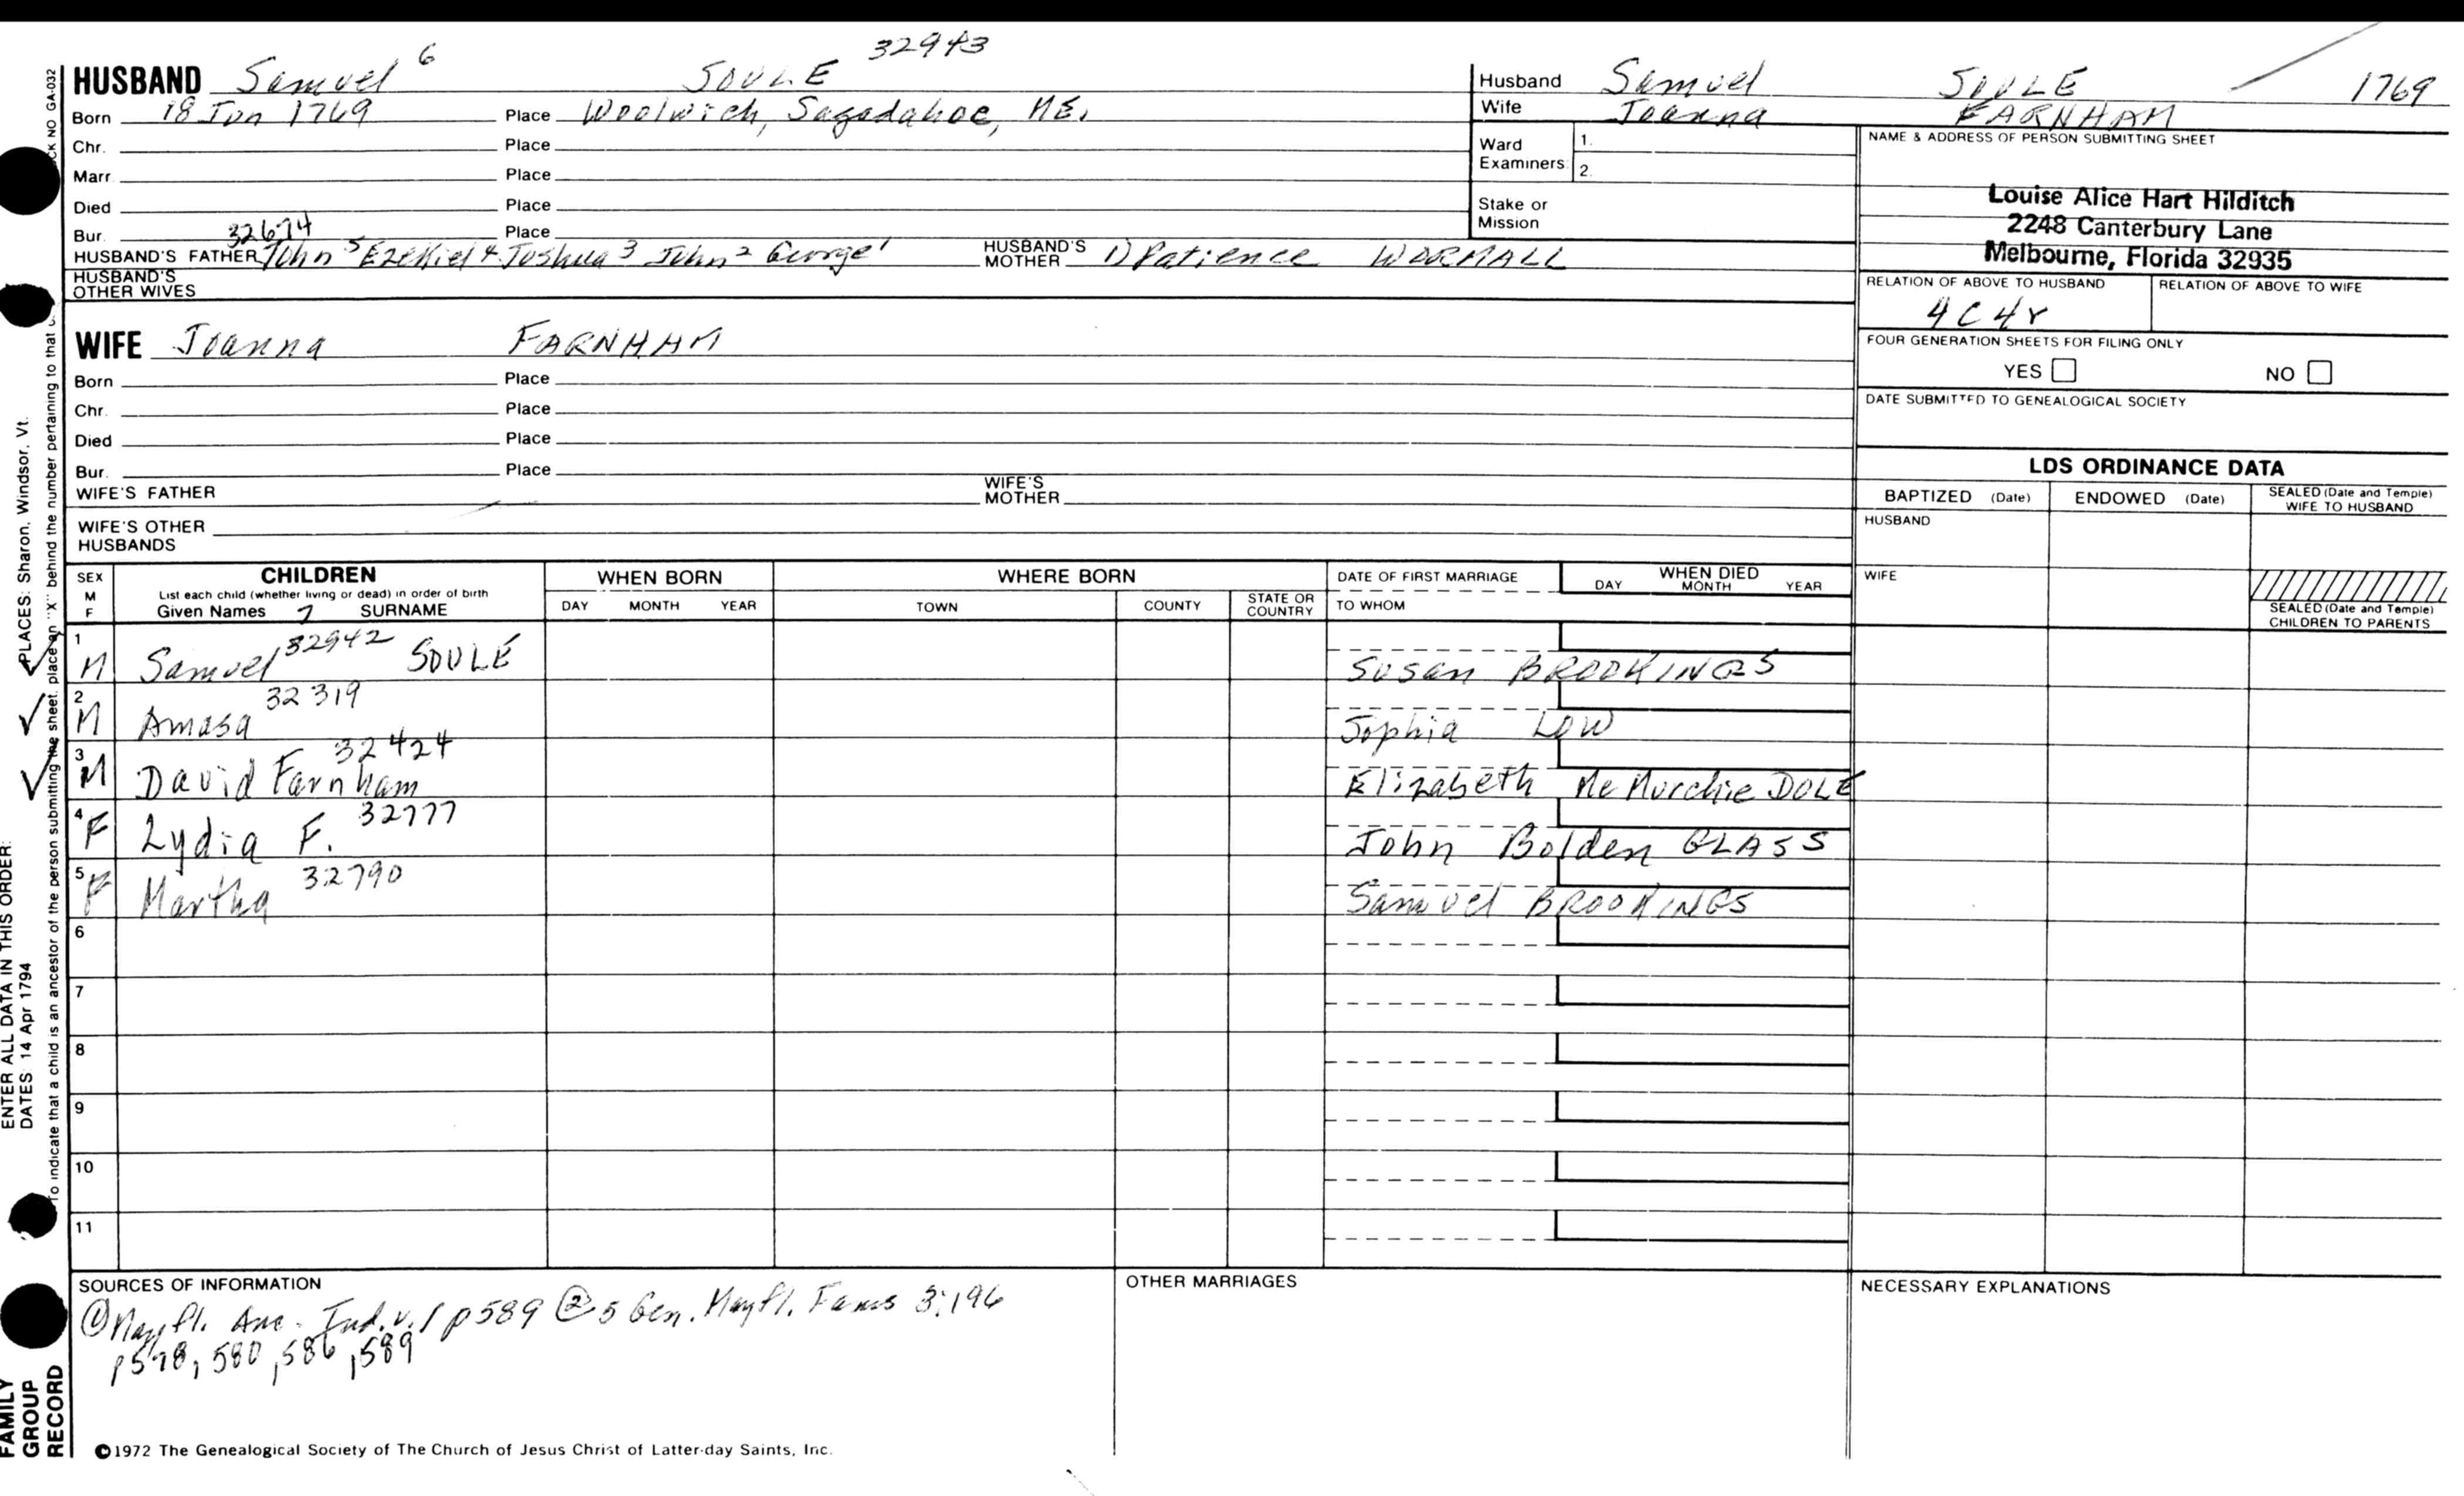 HUSBAND Samuel 6 SOULE 32943
Born 18 Jun 1769 Place Woolwich, Sagadahoc, ME.
Chr. Place
Marr. Place
Died Place
Bur. 32674 Place
HUSBAND'S FATHER John 5 Ezekiel 4 Joshua 3 John 2 George 1 HUSBAND'S MOTHER 1) Patience WORMALL
HUSBAND'S OTHER WIVES
WIFE Joanna FARNHAM
Born Place
Chr. Place
Died Place
Bur. Place
WIFE'S FATHER WIFE'S MOTHER
WIFE'S OTHER HUSBANDS
Husband Samuel SOULE 1769
Wife Joanna FARNHAM
Ward Examiners 1.
2.
Stake or Mission
NAME & ADDRESS OF PERSON SUBMITTING SHEET
Louise Alice Hart Hilditch
2248 Canterbury Lane
Melbourne, Florida 32935
RELATION OF ABOVE TO HUSBAND RELATION OF ABOVE TO WIFE
4C4r
FOUR GENERATION SHEETS FOR FILING ONLY
YES NO
DATE SUBMITTED TO GENEALOGICAL SOCIETY
LDS ORDINANCE DATA
BAPTIZED (Date) ENDOWED (Date) SEALED (Date and Temple) WIFE TO HUSBAND
HUSBAND
WIFE
SEALED (Date and Temple) CHILDREN TO PARENTS
SEX M F CHILDREN WHEN BORN WHERE BORN DATE OF FIRST MARRIAGE WHEN DIED
List each child (whether living or dead) in order of birth
Given Names 7 SURNAME DAY MONTH YEAR TOWN COUNTY STATE OR COUNTRY TO WHOM DAY MONTH YEAR
1 M Samuel 32942 SOULE Susan BROOKINGS
2 M Amasa 32319 Sophia LOW
3 M David Farnham 32424 Elizabeth McMurchie DOLE
4 F Lydia F. 32777 John Bolden GLASS
5 F Martha 32790 Samuel BROOKINGS
6
7
8
9
10
11
SOURCES OF INFORMATION
① Mayfl. Anc. Ind. v. 1 p589 ② 5 Gen. Mayfl. Fams 3:196
p578, 580, 586, 589
OTHER MARRIAGES
NECESSARY EXPLANATIONS
©1972 The Genealogical Society of The Church of Jesus Christ of Latter-day Saints, Inc.
FAMILY GROUP RECORD
ENTER ALL DATA IN THIS ORDER:
DATES: 14 Apr 1794
PLACES: Sharon, Windsor, Vt.
To indicate that a child is an ancestor of the person submitting the sheet, place an "X" behind the number pertaining to that
NO GA-032